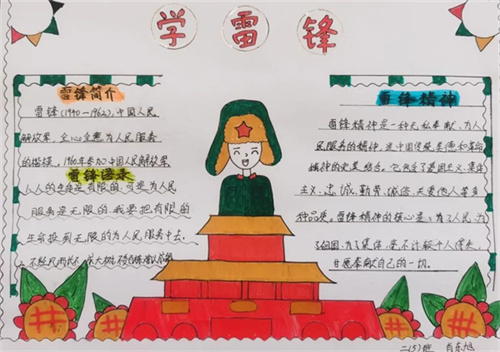 学雷锋
雷锋简介
雷锋(1940-1962),中国人民
解放军,全心全意为人民服务
的楷模,1960年参加中国人民解放军
雷锋语录
人的生命是有限的,可是为人民
服务是无限的,我要把有限的
生命投到无限的为人民服务中去。
雷锋精神
雷锋精神是一种无私奉献、为人
民服务的精神,是中国传统美德和革命
精神的完美结合。它包含了爱国主义、集体
主义、忠诚、勤劳、诚信、关爱他人等多
种品质。雷锋精神的核心是:为了人民、为
了祖国、为了集体,毫不计较个人得失,
甘愿奉献自己的一切。
二(5)班 肖东旭